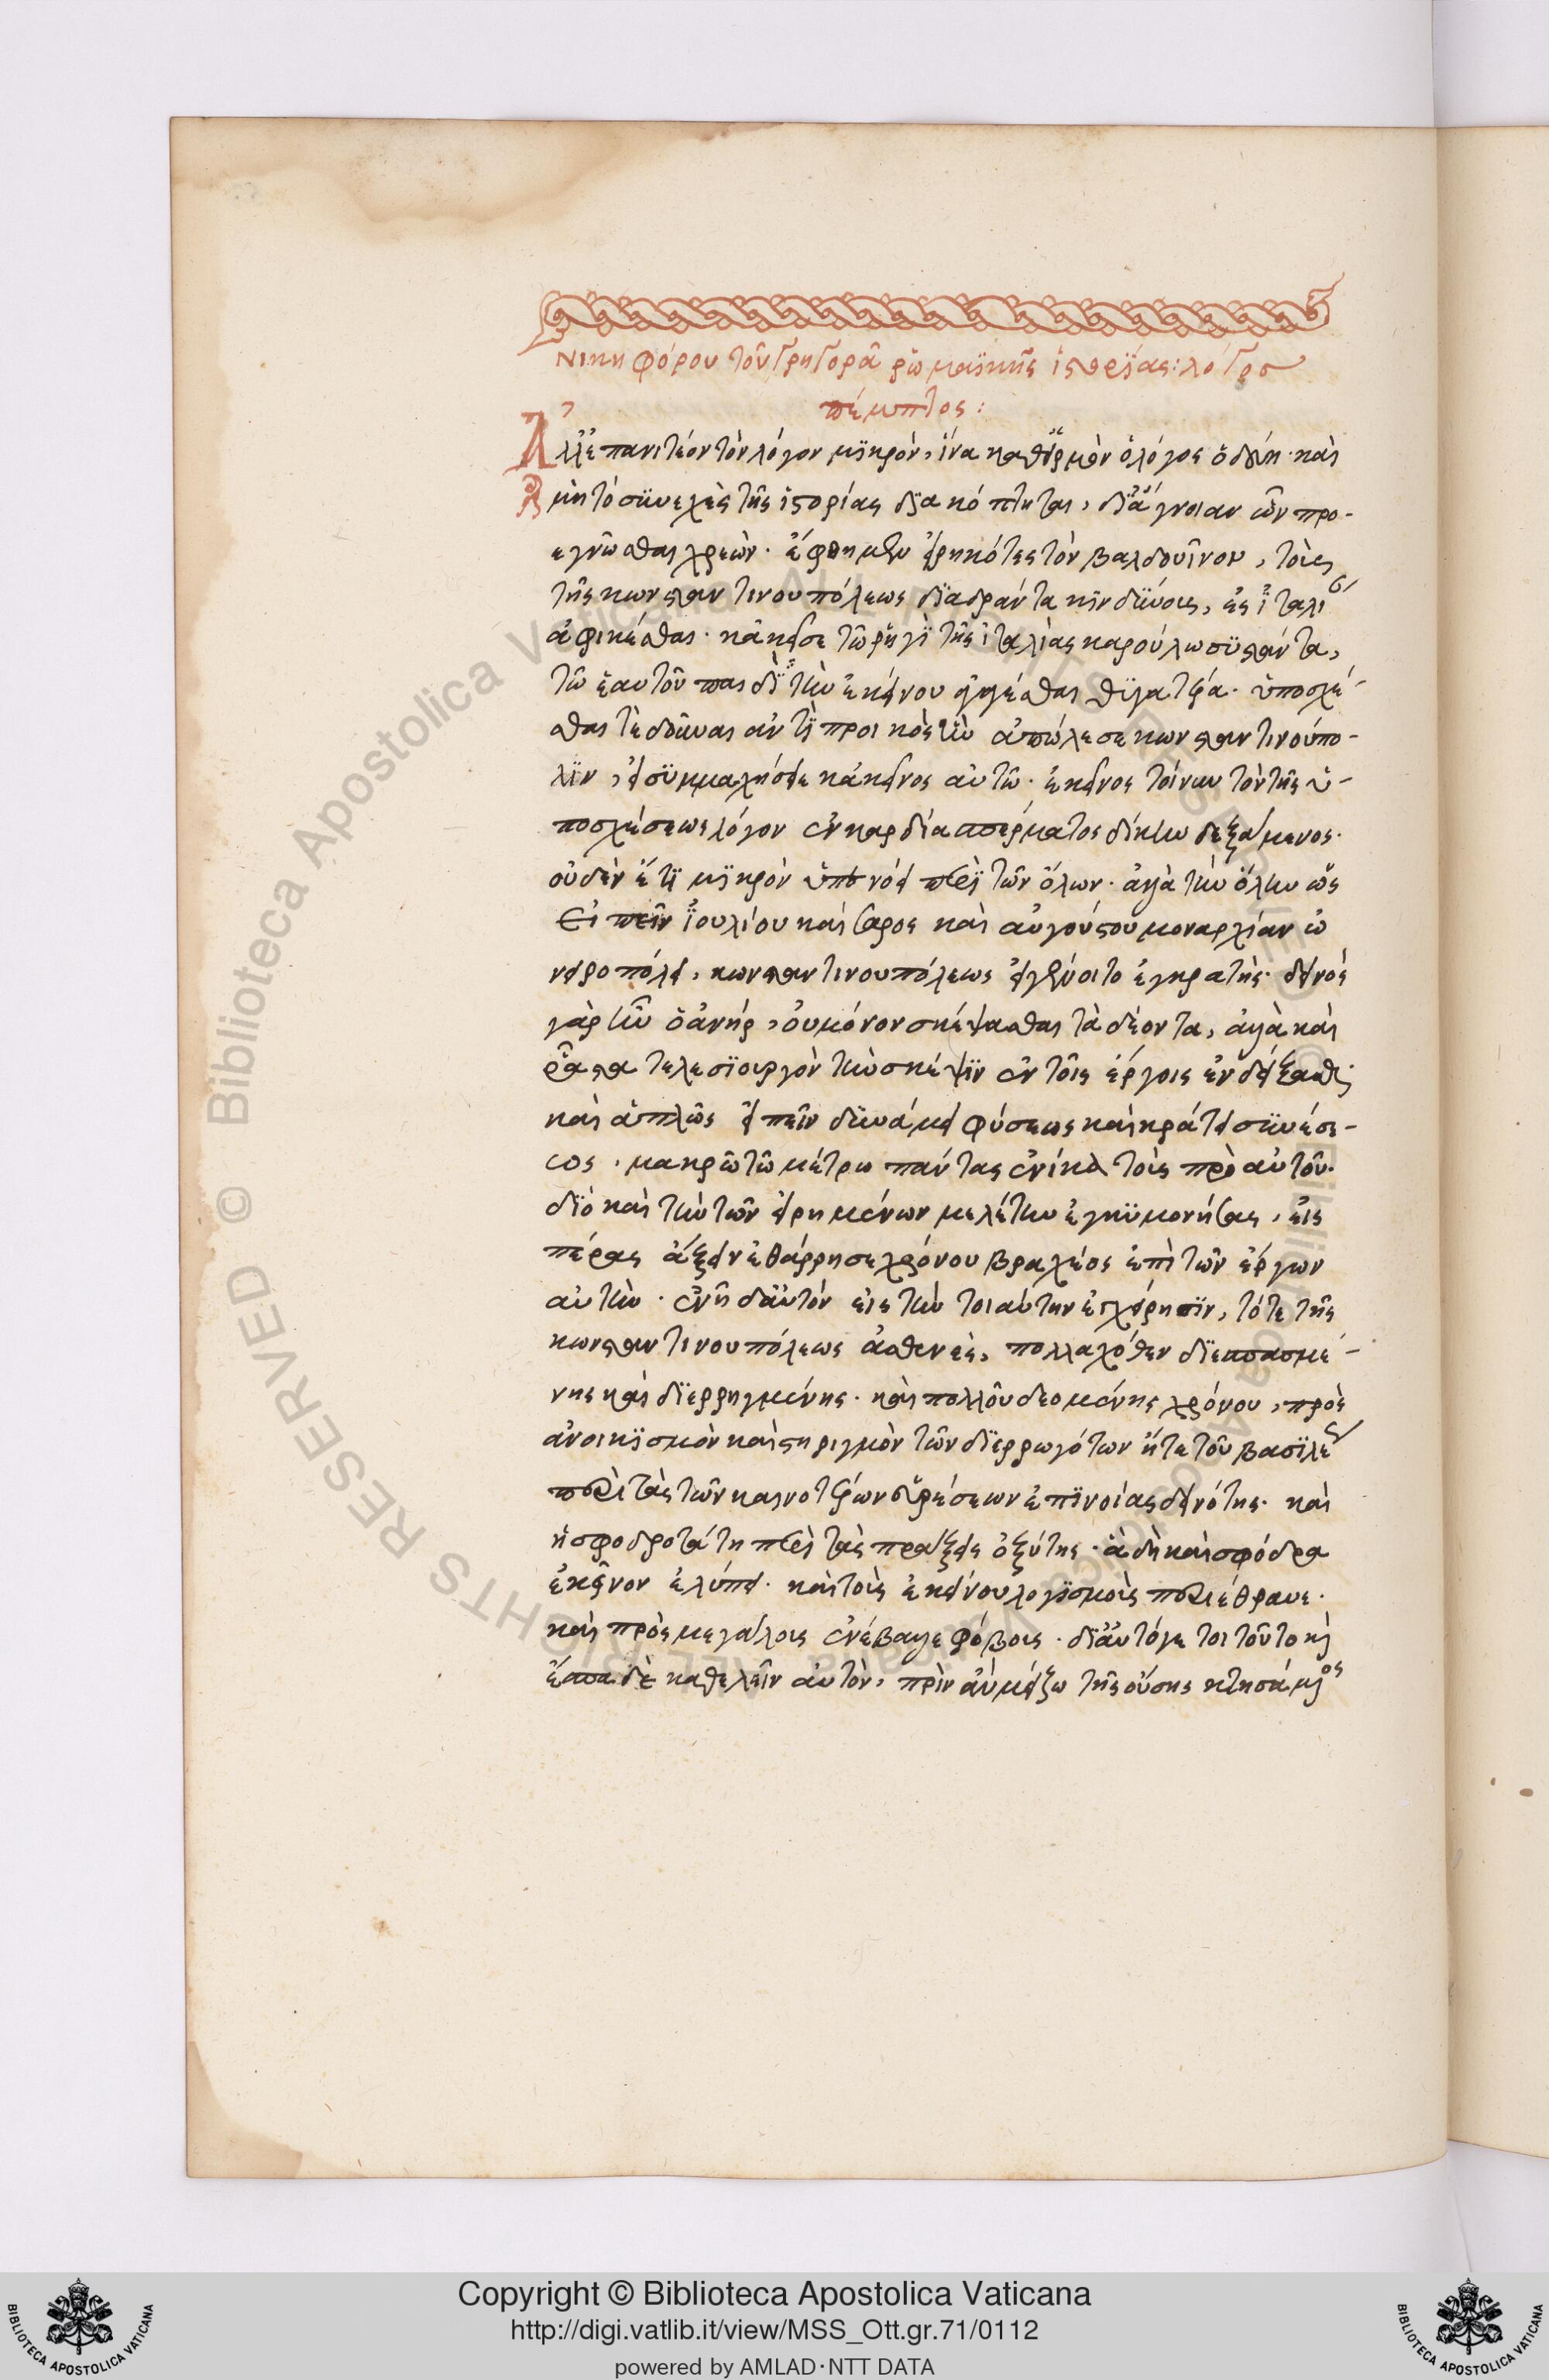 Νικηφόρου τοῦ Γρηγορᾶ ῥωμαϊκῆς ἱστορίας: λόγος
πέμπτος:
Ἀλλ' ἐπανιτέον τὸν λόγον μϊκρὸν, ἵνα καθ' εἱρμὸν ὁ λόγος ὁδεύη· καὶ
μὴ τὸ συνεχὲς τῆς ἱστορίας διακόπτηται, δι' ἄγνοιαν ὧν προ-
εγνῶσθαι χρεών. ἔφθημεν εἰρηκότες τὸν βαλδουῖνον, τοὺς
τῆς κωνσταντινουπόλεως διαδράντα κινδύνους, ἐς ἰταλί
ἀφικέσθαι. κἀκεῖσε τῶ ῥηγὶ τῆς ἰταλίας καρούλω συστάντα,
τῶ ἑαυτοῦ παιδὶ τὴν ἐκείνου θυγατέρα. ὑποσχέ-
σθαι τὲ δοῦναι ἀντὶ προικὸς ἣν ἀπώλεσε κωνσταντινούπο-
λιν, εἰ συμμαχήσει κἀκεῖνος αὐτῶ. ἐκεῖνος τοίνυν τὸν τῆς ὑ-
ποσχέσεως λόγον ἐν καρδία σπέρματος δίκην δεξάμενος.
οὐδὲν ἔτι μϊκρὸν νόει περὶ τῶν ὅλων. ἀλλὰ τὴν ὅλην ὡς
εἰπεῖν ἰουλίου καίσαρος καὶ αὐγούστου μοναρχίαν ὠ
νειροπόλει, κωνσταντινουπόλεως εἰ γένοιτο ἐγκρατής. δεινὸς
γὰρ ἦν ὁ ἀνήρ, οὐ μόνον σκέψασθαι τὰ δέοντα, ἀλλὰ καὶ
ῥᾶστα τελεσϊουργὸν τὴν σκέψϊν ἐν τοῖς ἔργοις ἐνδείξασθαι
καὶ ἁπλῶς εἰπεῖν δυνάμει φύσεως καὶ κράτει συνέσε-
ως, μακρῶ τῶ μέτρω πάντας ἐνίκα τοὺς πρὸ αὐτοῦ.
διὸ καὶ τὴν τῶν εἰρημένων μελέτην ἐγκυμονήσας, εἰς
πέρας ἄξειν ἐθάρρησε χρόνου βραχέος ἐπὶ τῶν ἔργων
αὐτήν. ἐνῆγε δ' αὐτὸν εἰς τὴν τοιαύτην ἐγχείρησϊν, τότε τῆς
κωνσταντινουπόλεως ἀσθενὲς, πολλαχόθεν διεσπασμέ-
νης καὶ διερρηγμένης. καὶ πολλοῦ δεομένης χρόνου, πρὸς
ἀνοικϊσμὸν καὶ στηριγμὸν τῶν διερρωγότων ἥ τε τοῦ βασϊλέως
περὶ τὰς τῶν καινοτέρων εὑρέσεων ἐπϊνοίας δεινότης. καὶ
ἡ σφοδροτάτη περὶ τὰς πράξεις ὀξύτης. ἃ δὴ καὶ σφόδρα
ἐκεῖνον ἐλύπει. καὶ τοὺς ἐκείνου λογϊσμοὺς περιέθραυε.
καὶ πρὸς μεγάλους ἐνέβαλε φόβους. δι' αὐτό γε τοι τοῦτο καὶ
ἔσπευδε καθελεῖν αὐτὸν, πρὶν ἂν μείζω τῆς οὔσης κτησάμενος
Copyright © Biblioteca Apostolica Vaticana
http://digi.vatlib.it/view/MSS_Ott.gr.71/0112
powered by AMLAD·NTT DATA